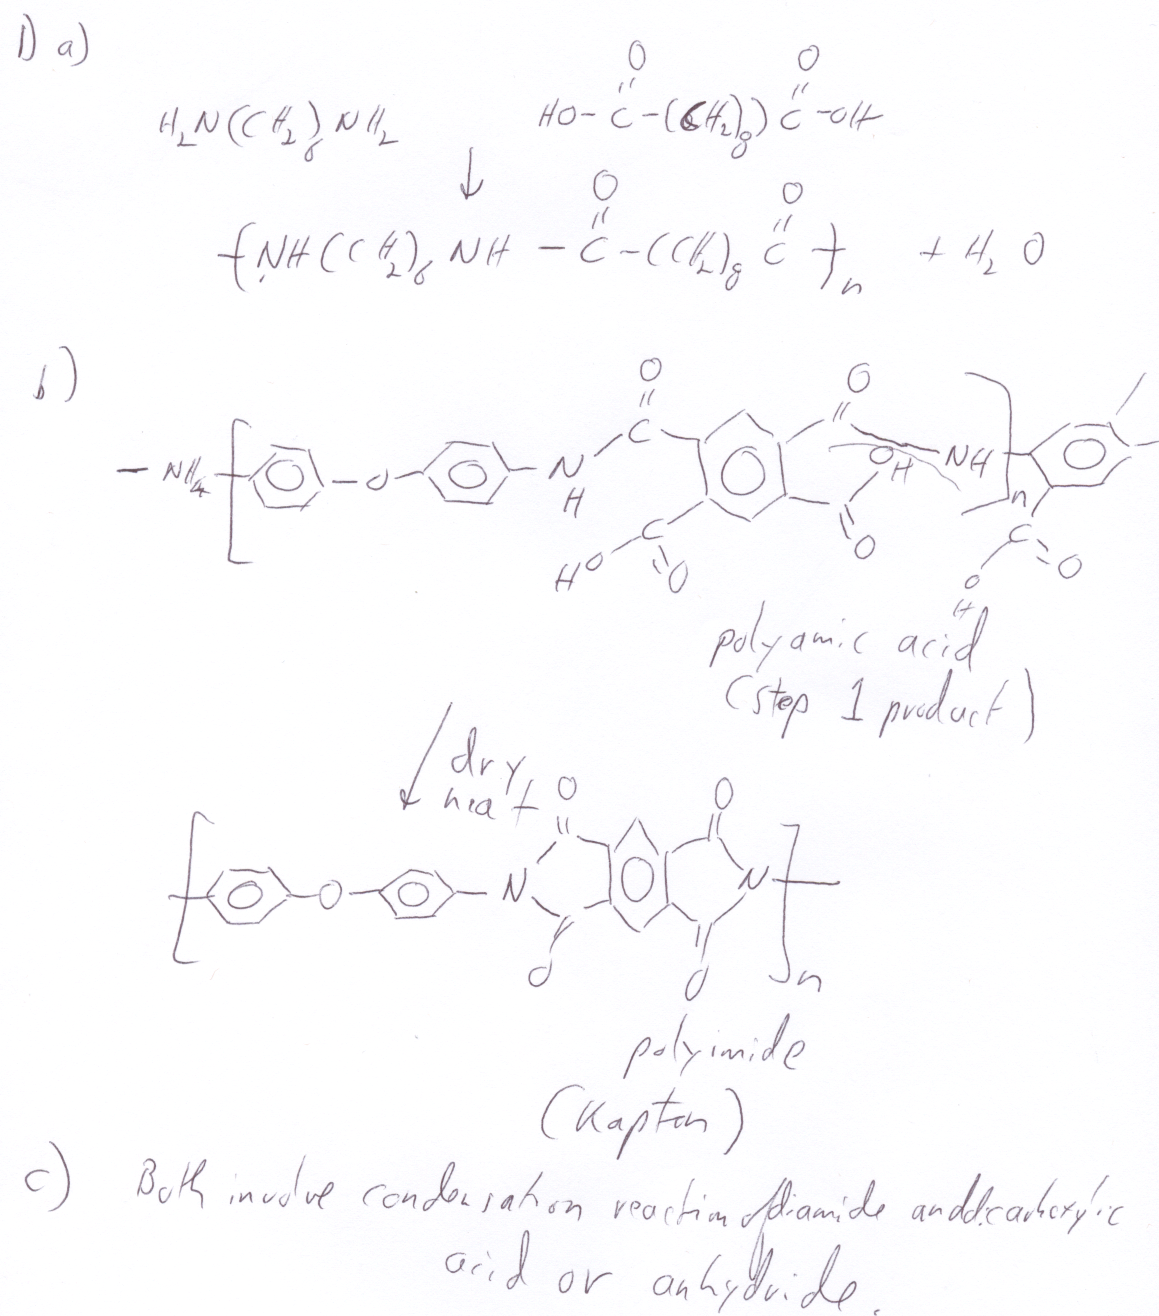 1) a)
O O
H₂N(CH₂)₆NH₂ HO-C-(CH₂)₈)C-OH
↓
O O
{NH(CH₂)₆NH-C-(CH₂)₈C}n + H₂O
b)
O O
C
-NH₄ [ O N H C OH NH ]n
HO C O O C O
O
H
polyamic acid
(step 1 product)
↓ dry,
heat
O O
[ O N N ]n
O O
polyimide
(Kapton)
c) Both involve condensation reaction of diamide and dicarboxylic
acid or anhydride.